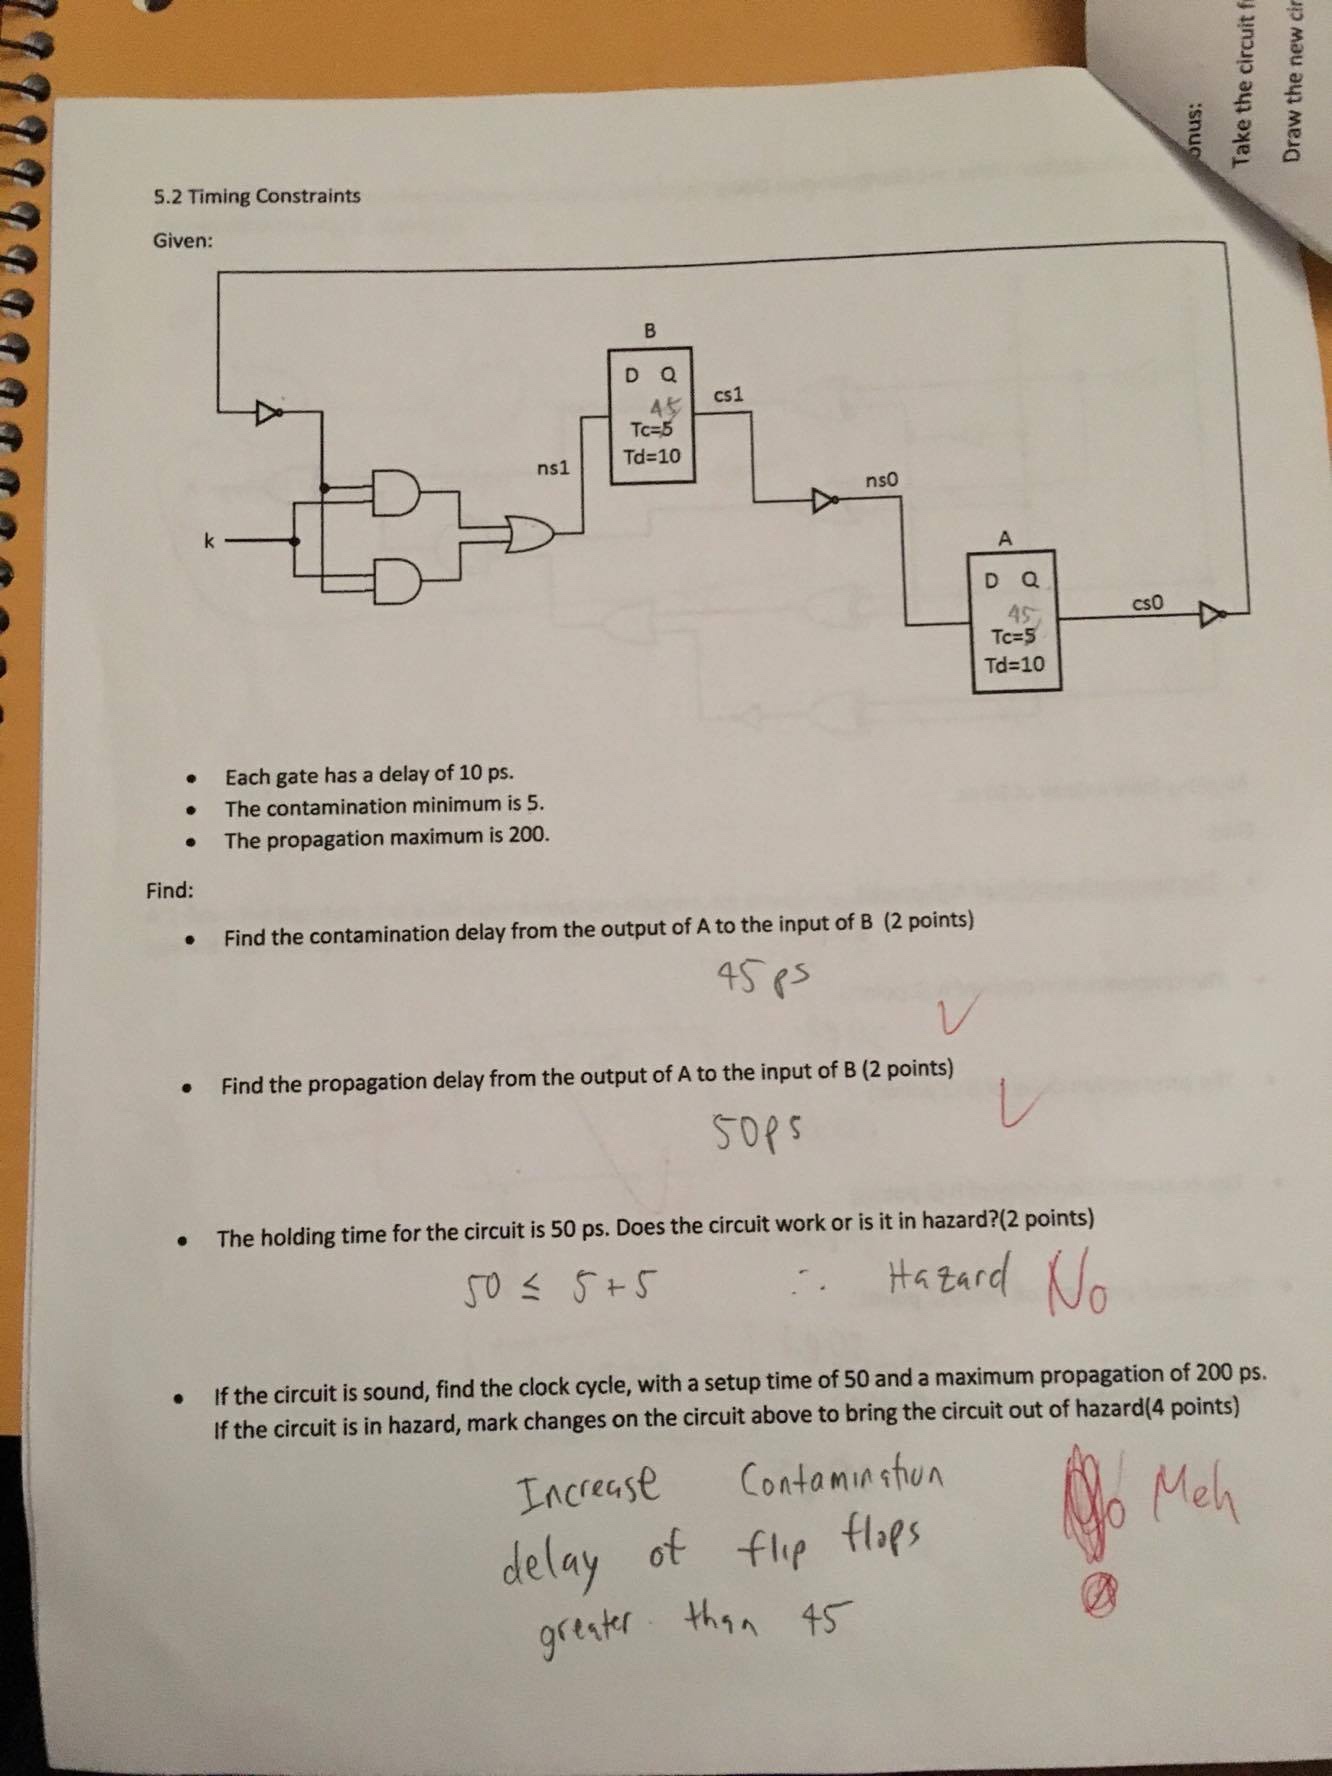 onus:
Take the circuit f
Draw the new cir
5.2 Timing Constraints
Given:
B
D Q
45
Tc=5
Td=10
cs1
ns1
ns0
k
A
D Q
45
Tc=5
Td=10
cs0
• Each gate has a delay of 10 ps.
• The contamination minimum is 5.
• The propagation maximum is 200.
Find:
• Find the contamination delay from the output of A to the input of B (2 points)
45 ps
• Find the propagation delay from the output of A to the input of B (2 points)
50ps
• The holding time for the circuit is 50 ps. Does the circuit work or is it in hazard?(2 points)
50 ≤ 5+5 ∴ Hazard No
• If the circuit is sound, find the clock cycle, with a setup time of 50 and a maximum propagation of 200 ps.
If the circuit is in hazard, mark changes on the circuit above to bring the circuit out of hazard(4 points)
Increase Contamination
Meh
delay of flip flops
greater than 45